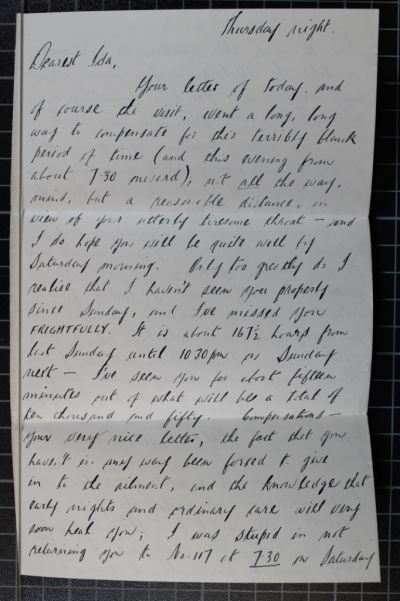 Thursday night.
Dearest Ida,
Your letter of today, and
of course the visit, went a long, long
way to compensate for this terribly blank
period of time (and this evening from
about 7.30 onward), not all the way,
mind, but a reasonable distance, in
view of your utterly tiresome throat – and
I do hope you will be quite well by
Saturday morning. Only too greatly do I
realise that I haven't seen you properly
since Sunday, and I've missed you
FRIGHTFULLY. It is about 167½ hours from
last Sunday until 10.30pm on Sunday
next – I've seen you for about fifteen
minutes out of what will be a total of
ten thousand and fifty. Compensations –
your very nice letter, the fact that you
haven't in any way been forced to give
in to the ailment, and the knowledge that
early nights and ordinary care will very
soon heal you; I was stupid in not
returning you to No. 117 at 7.30 on Saturday